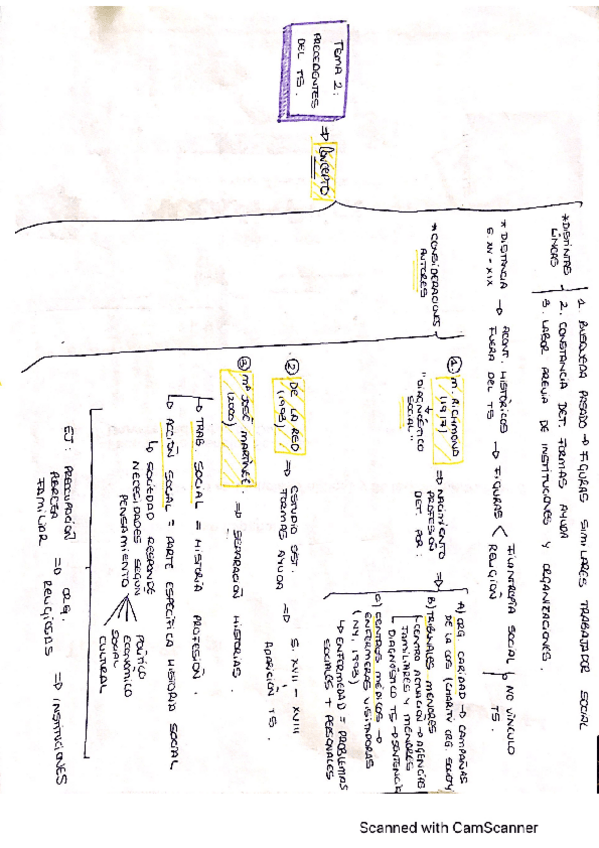 TEMA 2:
PRECEDENTES
DEL TS.
⇒ CONCEPTO
* DISTINTAS
LÍNEAS
1. BUSQUEDA PASADO → FIGURAS SIMILARES TRABAJADOR SOCIAL
2. CONSTANCIA DET. FORMAS AYUDA
3. LABOR PREVIA DE INSTITUCIONES Y ORGANIZACIONES.
* DISTANCIA → ACONT. HISTÓRICOS → FIGURAS < FILANTROPÍA SOCIAL
S. XV - XIX FUERA DEL TS RELIGIÓN
NO VÍNCULO
TS.
* CONSIDERACIONES
AUTORES
1. M. RICHMOND
(1917)
"DIAGNÓSTICO
SOCIAL"
⇒ NACIMIENTO ⇒
PROFESIÓN
DET. POR:
A) ORG. CARIDAD → CAMPAÑAS
DE LA COS (CHARITY ORG. SOCIETY
B) TRIBUNALES MENORES
↳ CENTRO ACTUACIÓN → AGENCIAS
FAMILIARES Y MENORES
DIAGNÓSTICO TS → SENTENCIA
C) CENTROS MÉDICOS →
ENFERMERAS VISITADORAS
(NY, 1893)
↳ ENFERMEDAD = PROBLEMAS
SOCIALES + PERSONALES
2 DE LA RED ⇒ ESTUDIO SIST. ⇒ S. XVII - XVIII
(1993) FORMAS AYUDA
APARICIÓN TS.
3 Mª JOSÉ MARTÍNEZ ⇒ SEPARACIÓN HISTORIAS.
(2000)
↳ TRAB. SOCIAL = HISTORIA PROFESIÓN.
↳ ACCIÓN SOCIAL = PARTE ESPECÍFICA HISTORIA SOCIAL
↳ SOCIEDAD RESPONDE
NECESIDADES SEGÚN
PENSAMIENTO
POLÍTICO
ECONÓMICO
SOCIAL
CULTURAL
EJ: PREOCUPACIÓN ⇒ ORG. ⇒ INSTITUCIONES
POBREZA RELIGIOSAS
FAMILIAR
Scanned with CamScanner